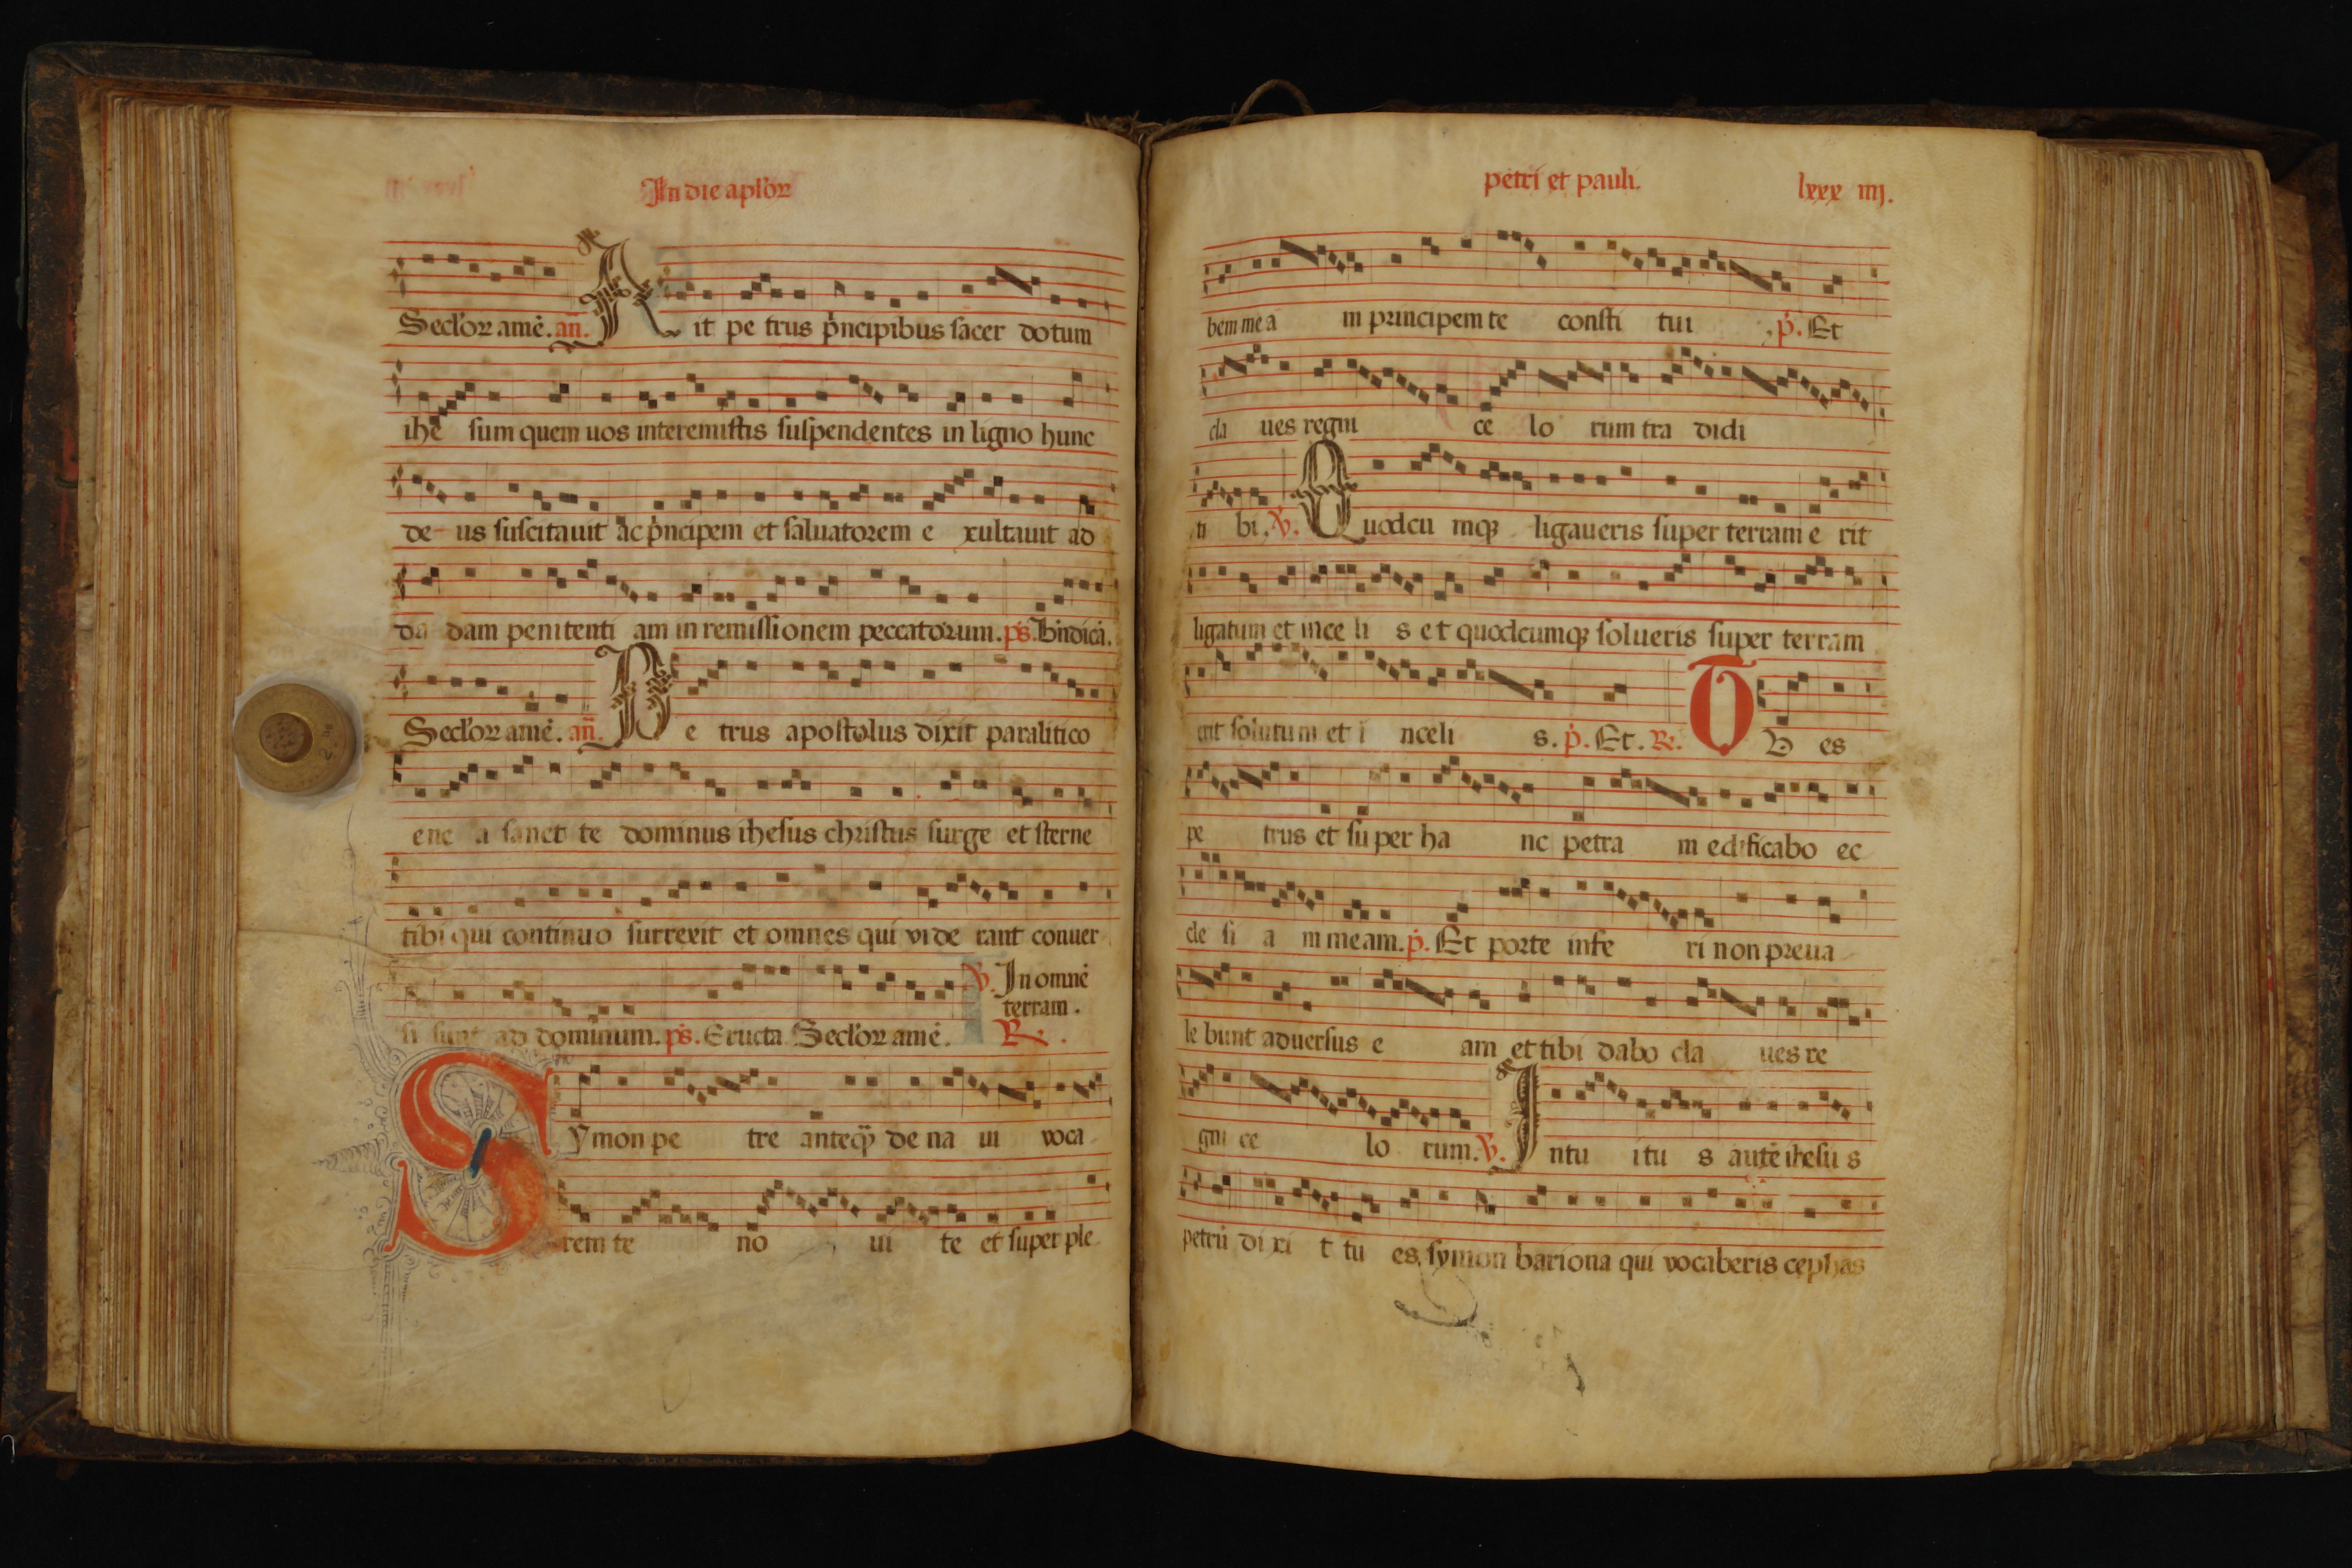 In die aplõr
Seclor amē. añ. A it pe trus pncipibus sacer dotum
ihe sum quem uos interemistis suspendentes in ligno hunc
de us suscitauit ac pncipem et saluatorem e xultauit ad
da dam penitenti am in remissionem peccatorum. ps. Bndicā.
Seclor amē. añ. P e trus apostolus dixit paralitico
ene a sanet te dominus ihesus christus surge et sterne
tibi qui continuo surrexit et omnes qui vide rant conuer
V. In omnē
terram.
si sunt ad dominum. ps. Eructa Seclor amē. R.
S ymon pe tre anteq de na ui voca
rem te no ui te et super ple
petri et pauli. lxxx iiij.
bem me a in principem te consti tui p. Et
cla ues regni ce lo rum tra didi
ti bi. V. Quodcu mqꝫ ligaueris super terram e rit
ligatum et in ce li s et quodcumqꝫ solueris super terram
erit solutum et i nceli s. p. Et. R. T V es
pe trus et super ha nc petra m edificabo ec
cle si a m meam. p. Et porte infe ri non preua
le bunt aduersus e am et tibi dabo cla ues re
gni ce lo rum. V. I ntu itu s autē ihesu s
petrū di xi t tu es symon bariona qui vocaberis cephas